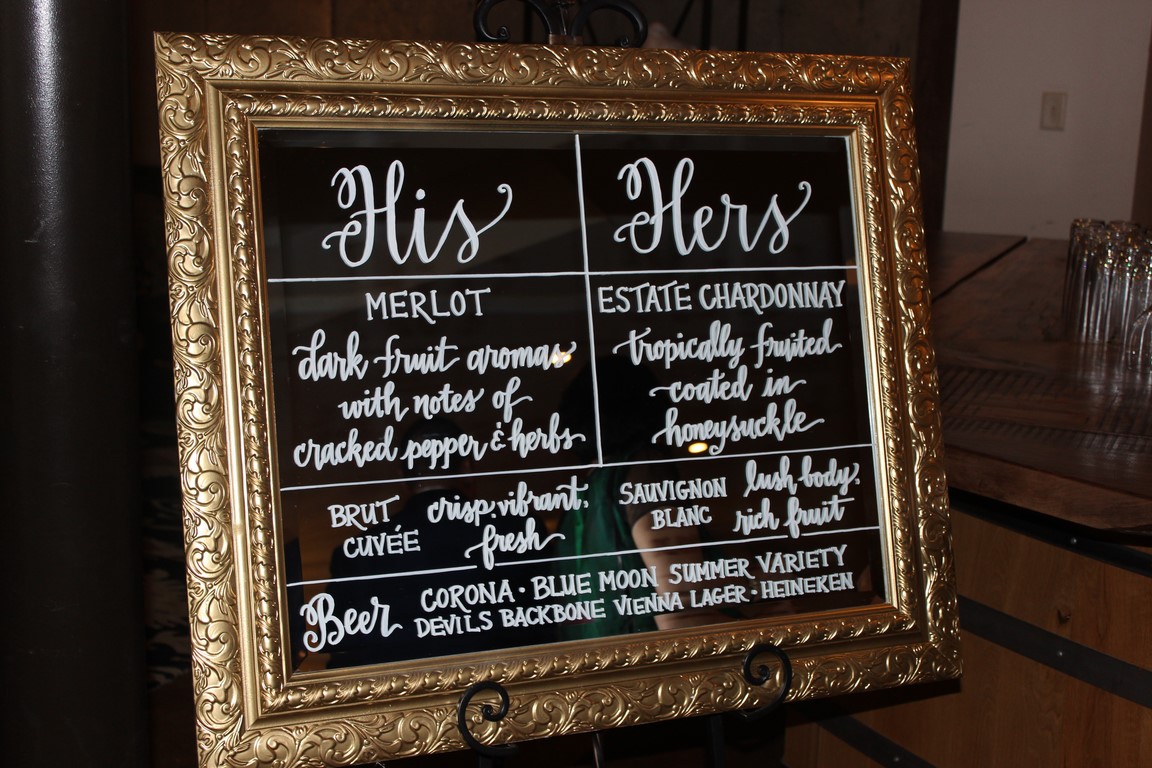 His
MERLOT
dark fruit aromas
with notes of
cracked pepper & herbs
Hers
ESTATE CHARDONNAY
tropically fruited
coated in
honeysuckle
BRUT
CUVÉE
crisp, vibrant,
fresh
SAUVIGNON
BLANC
lush body,
rich fruit
Beer
CORONA · BLUE MOON SUMMER VARIETY
DEVILS BACKBONE VIENNA LAGER · HEINEKEN